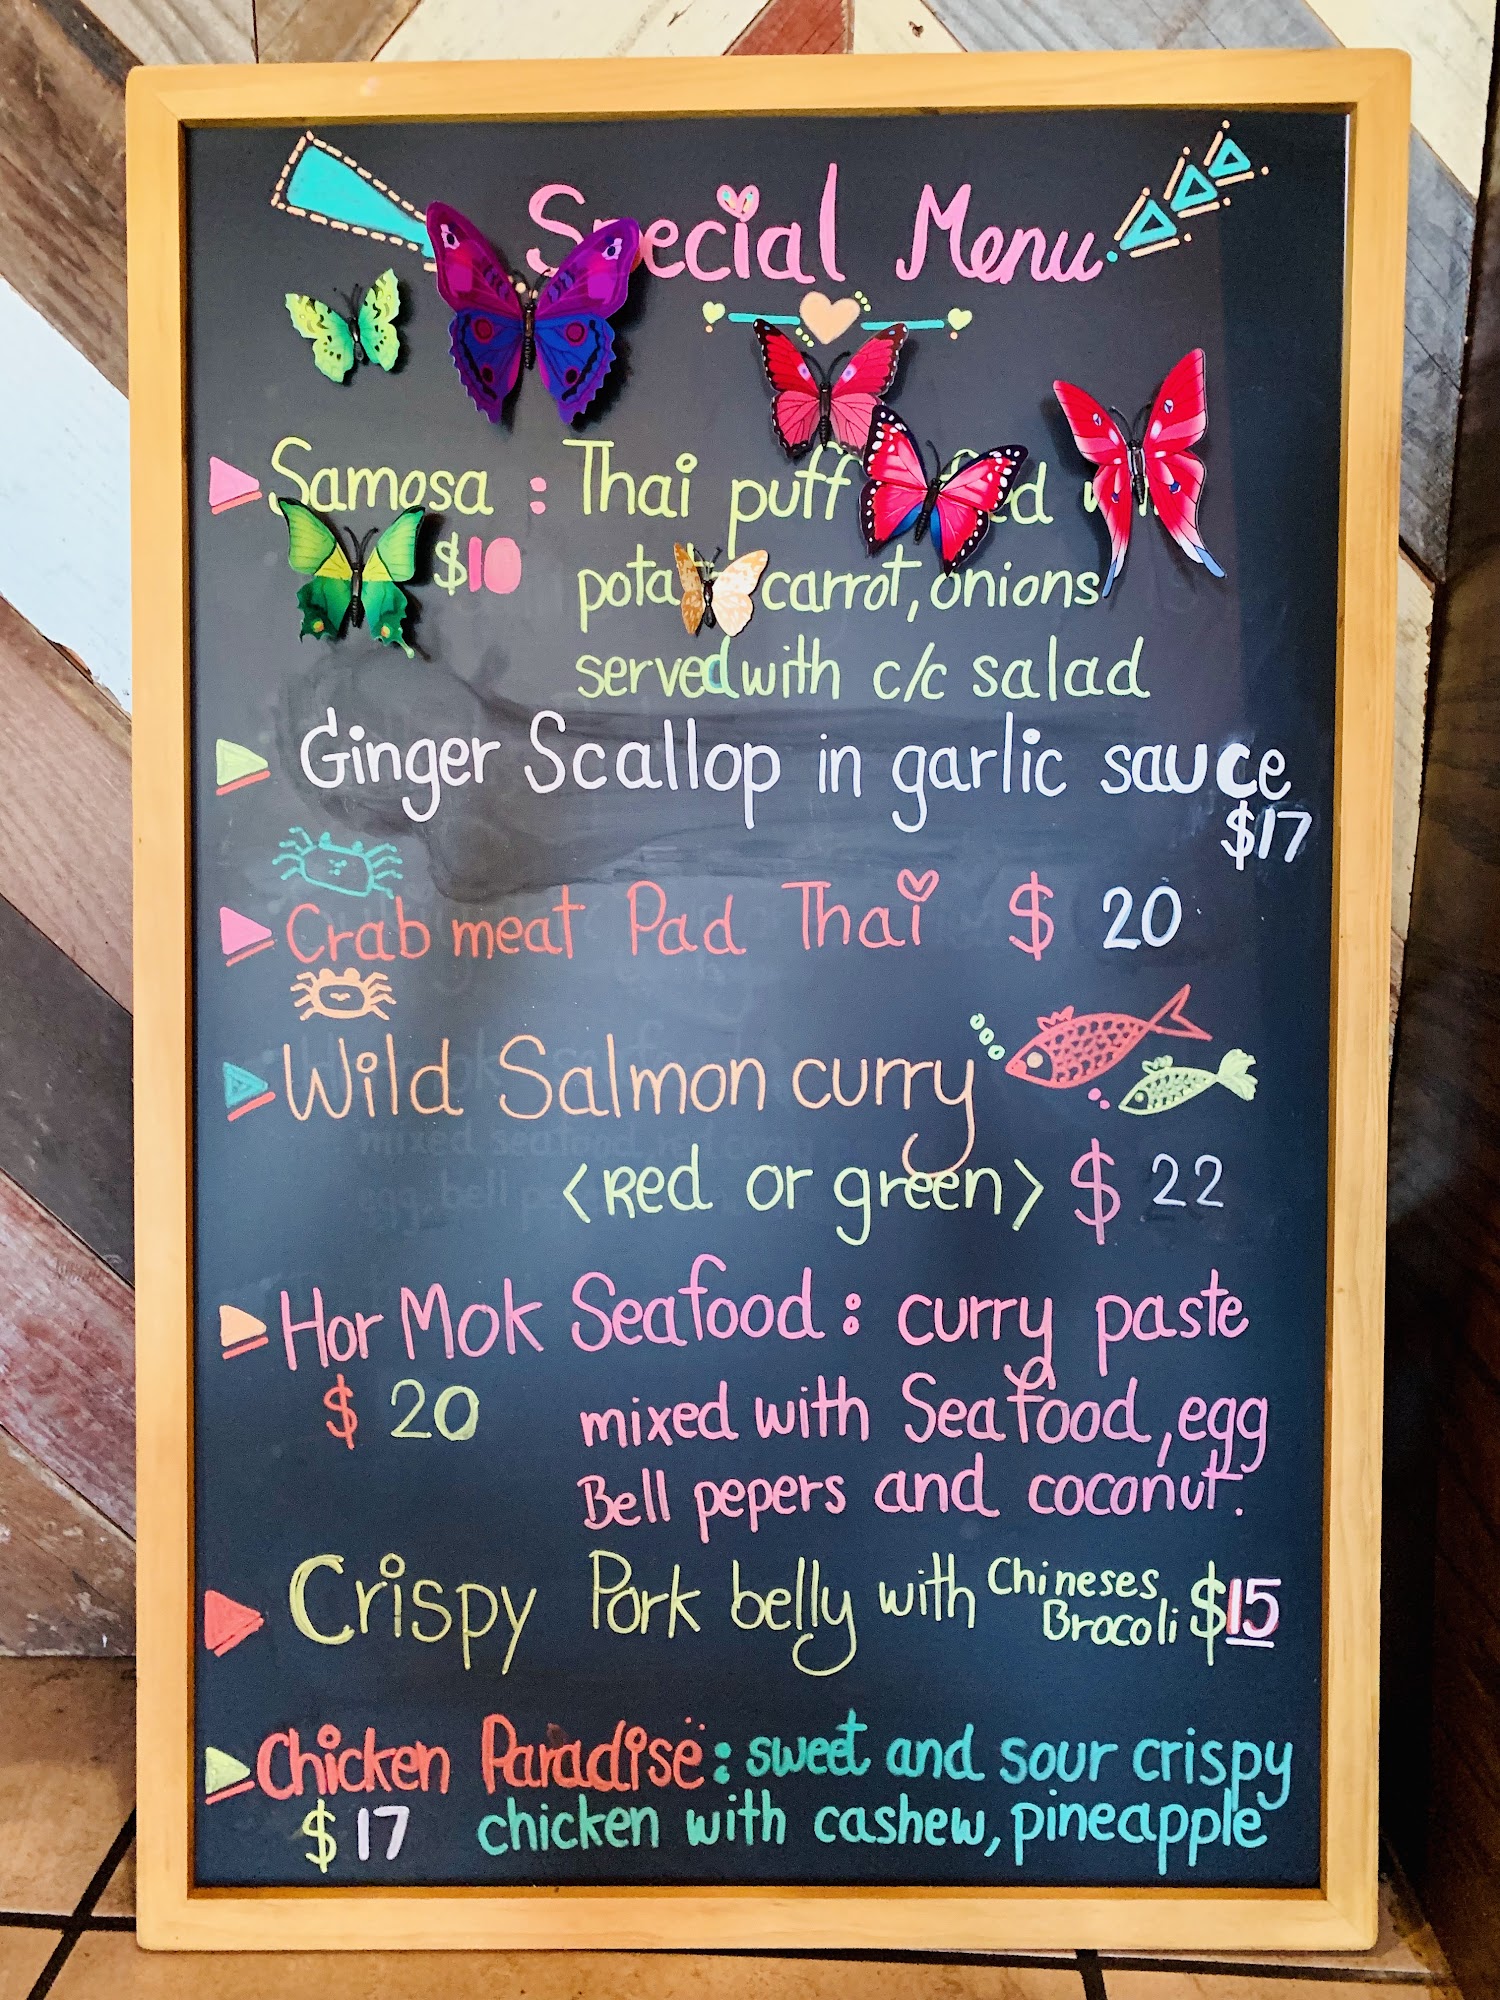 Special Menu
Samosa : Thai puff
$10 carrot, onions
served with c/c salad
Ginger Scallop in garlic sauce
$17
Crab meat Pad Thai $ 20
Wild Salmon curry
<Red or green> $ 22
Hor Mok Seafood : curry paste
$ 20 mixed with Seafood, egg
Bell pepers and coconut.
Crispy Pork belly with Chineses Brocoli $15
Chicken Paradise : sweet and sour crispy
$17 chicken with cashew, pineapple